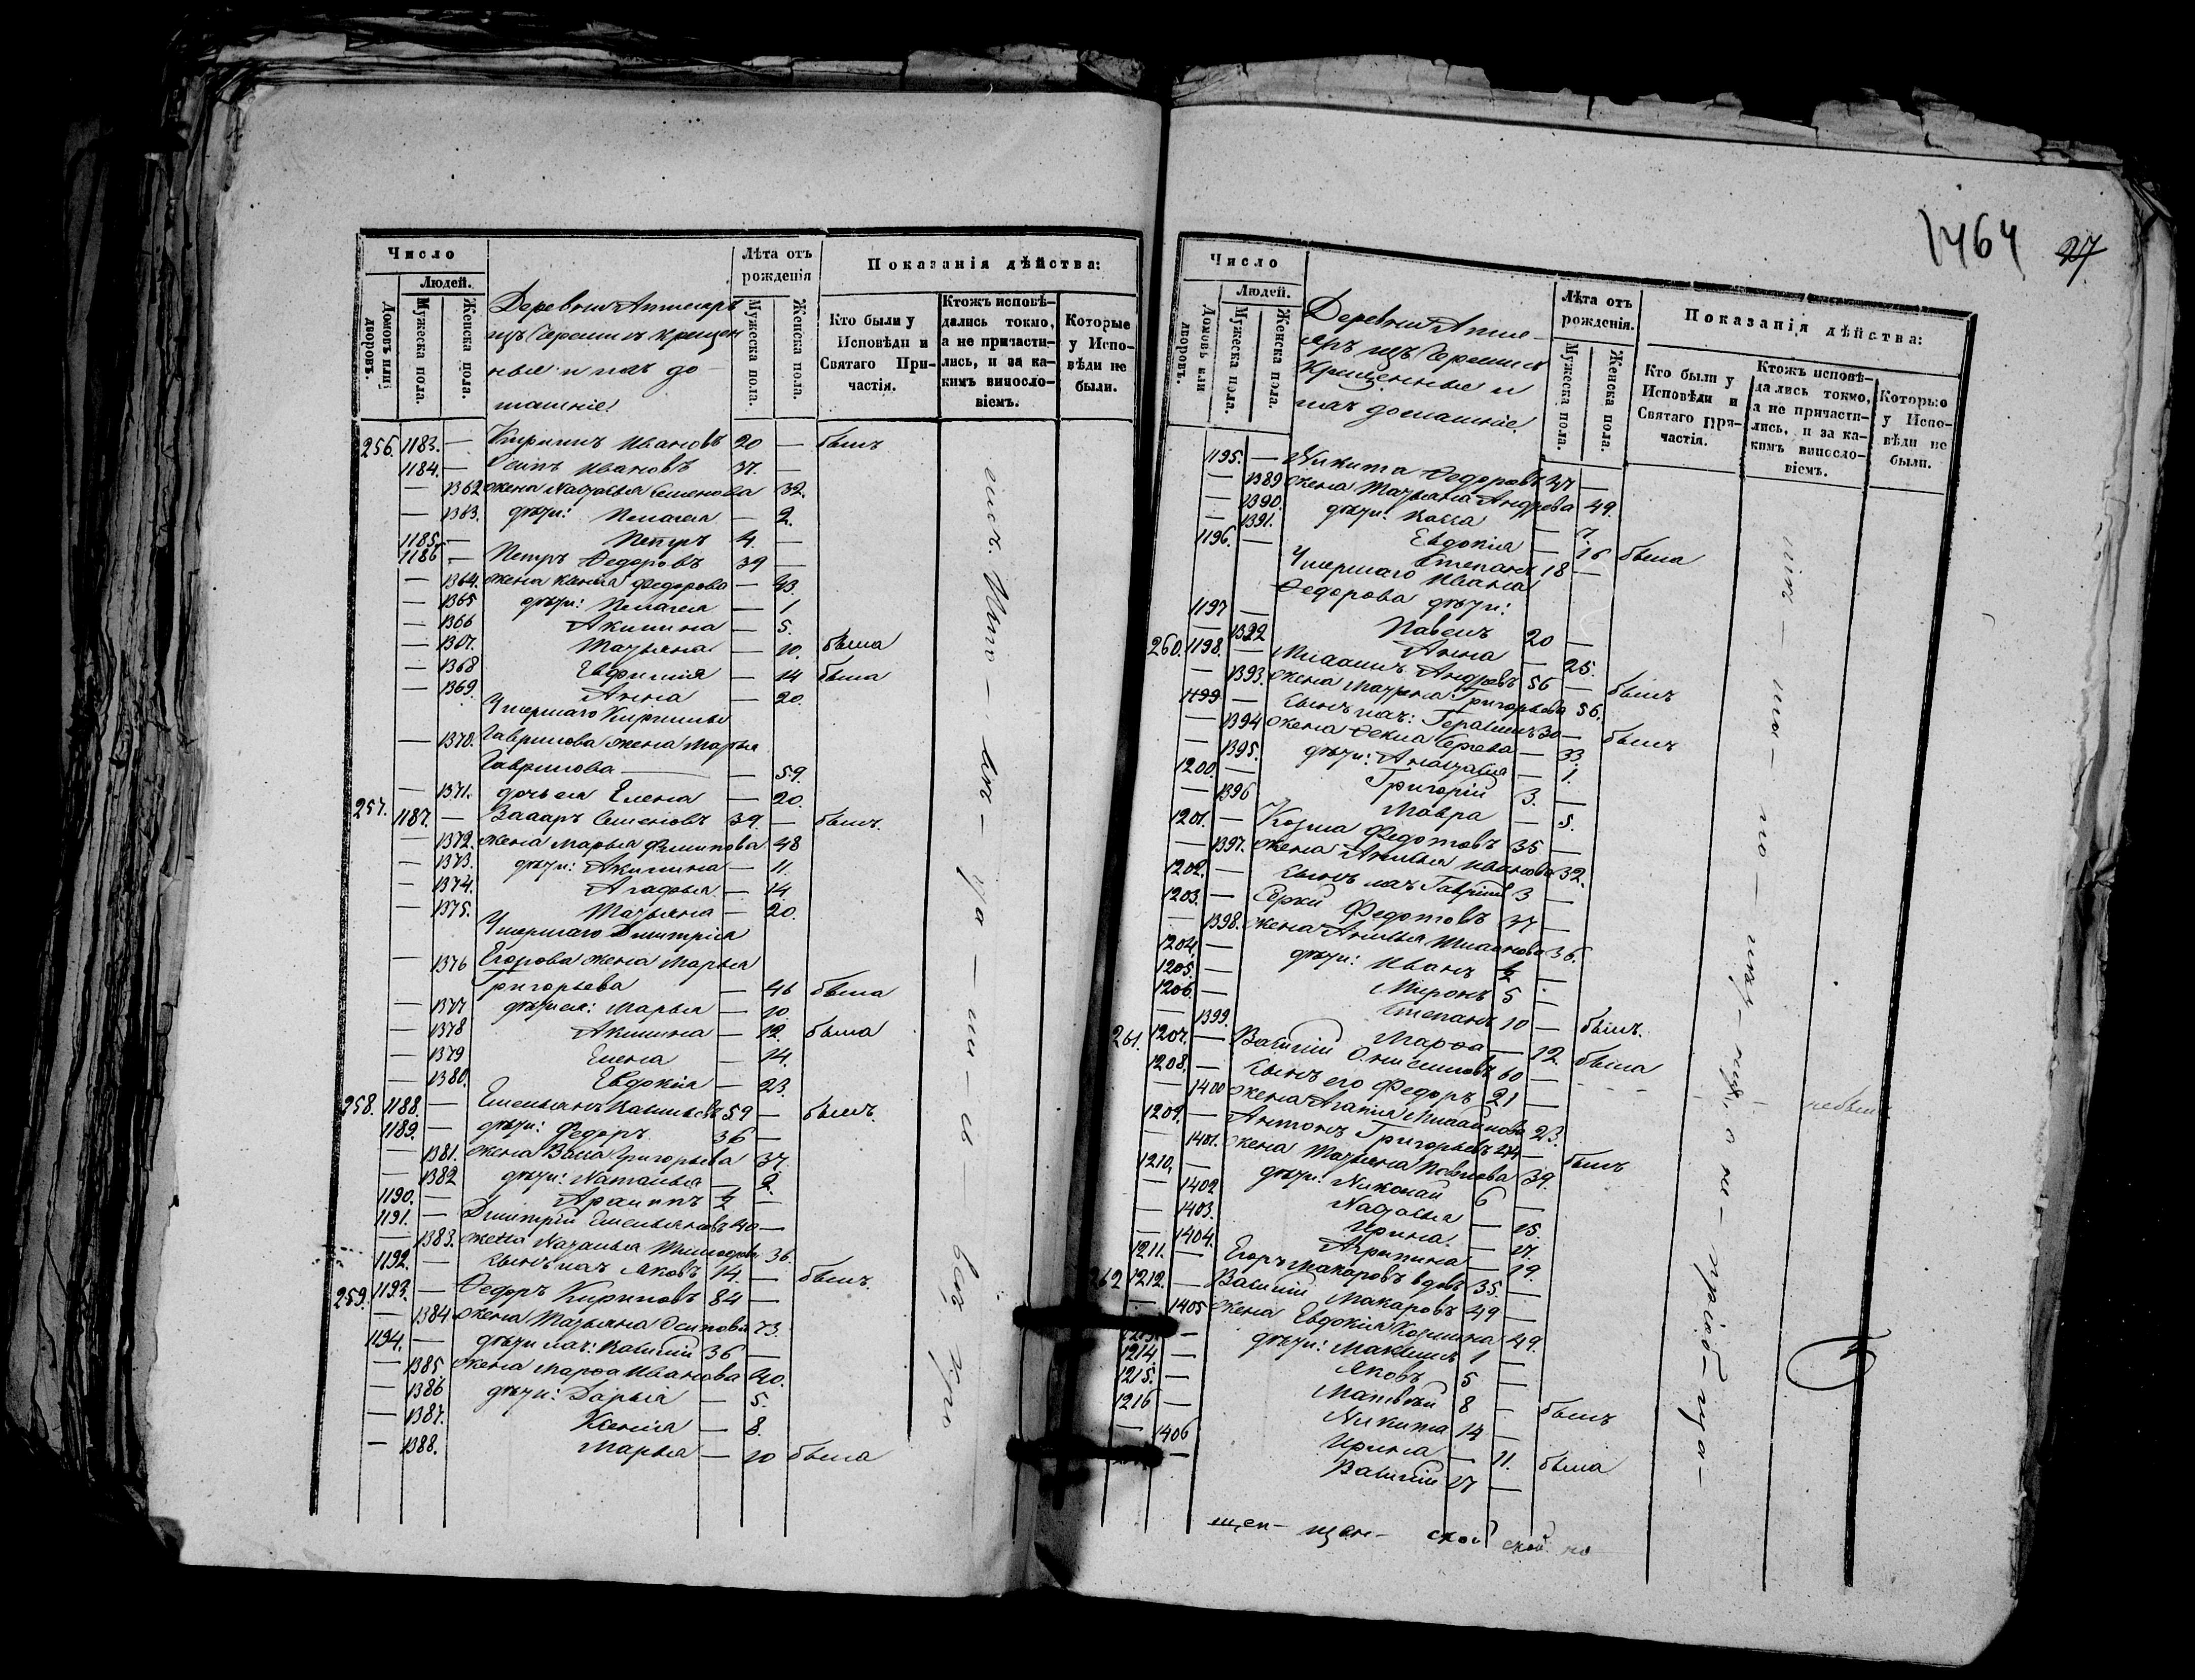 Число
Людей.
Домовъ или дворовъ.
Мужеска пола.
Женска пола.
Лѣта отъ рожденія
Мужеска пола.
Женска пола.
Показанія дѣйства:
Кто были у Исповѣди и Святаго Причастія.
Ктожъ исповѣдались токмо, а не причастились, и за какимъ винословіемъ.
Которые у Исповѣди не были.
Деревни
изъ Черемисъ крещен
ные и ихъ до
машніе.
256. 1183. — Кириллъ Ивановъ 20 — былъ
1184. — Осипъ Ивановъ 37. —
— 1362 жена Настасья Семенова 32.
— 1363. дѣти: Пелагея — 2.
1185. — Петръ 4. —
1186 — Петръ Федоровъ 39 —
— 1364. жена Ксенія Федорова — 43.
— 1365 дѣти: Пелагея — 1
— 1366 Акилина — 5.
— 1367. Татьяна — 10. была
— 1368 Евфимія — 14 была
— 1369. Анна — 20.
Умершаго Кирилы
— 1370. Гаврилова жена Марья
Гаврилова — 59.
— 1371. дочь ея Елена — 20.
257. 1187. — Семеновъ 39. — былъ.
— 1372. жена Марья Филипова 48
— 1373. дѣти: Акилина — 11.
— 1374. Агафья — 14
— 1375. Татьяна — 20.
Умершаго Димитрія
— 1376 Егорова жена Марья
Григорьева — 46 была
— 1377 дѣти ея: Марья — 10.
— 1378 Акилина — 12. была
— 1379 Елена — 14.
— 1380. Евдокія — 23.
258. 1188. — Емельянъ Васильевъ 59 — былъ.
1189. — дѣти: Федоръ 36 —
— 1381. жена Васса Григорьева 37.
— 1382 дѣти: Наталья — 2.
1190. — Архиппъ ½ —
1191. — Димитрій Емельяновъ 40 —
— 1383. жена Наталья 36.
1192. — сынъ ихъ Яковъ 14. — былъ.
259. 1193. — Федоръ Кириловъ 84 —
— 1384 жена Татьяна Осипова 73.
1194. — дѣти ихъ: Василій 36 —
— 1385 жена Марфа Иванова 40.
— 1386 дѣти: Дарья — 5.
— 1387. Ксенія — 8.
— 1388. Марья — 10 была
1464 27
Число
Людей.
Домовъ или дворовъ.
Мужеска пола.
Женска пола.
Лѣта отъ рожденія.
Мужеска пола.
Женска пола.
Показанія дѣйства:
Кто были у Исповѣди и Святаго Причастія.
Ктожъ исповѣдались токмо, а не причастились, и за какимъ винословіемъ.
Которые у Исповѣди не были.
Деревни
изъ Черемисъ
Крещенные и
ихъ домашніе.
1195. — Никита Федоровъ 47 —
— 1389 жена Татьяна Андреева 49.
— 1390. дѣти: Васса — 7.
— 1391. Евдокія — 16 была
1196. — Степанъ 18 —
Умершаго Ивана
Федорова дѣти:
1197 — Павелъ 20 —
— 1392 Анна — 25.
260. 1198. — Андреевъ 56 — былъ
— 1393. жена Матрена Григорьева 56.
1199 — сынъ ихъ: Герасимъ 30 — былъ
— 1394 жена Фекла Сергеева — 33.
— 1395. дѣти: Анастасія — 1.
1200. — Григорій 3. —
— 1396 Мавра — 5.
1201. — Козма Федотовъ 35 —
— 1397. жена Анисья Иванова 32.
1202. — сынъ ихъ Гаврилъ 3 —
1203. — Сергій Федотовъ 37 —
— 1398. жена Анисья 36.
1204. — дѣти: Иванъ ½ —
1205. — Миронъ 5 —
1206. — Степанъ 10 — былъ.
— 1399. Марфа — 12. была
261. 1207. — Василій Онисимовъ 60 — небылъ
1208. — сынъ его Федоръ 21 —
— 1400 жена Агапія 23.
1209. — Антонъ Григорьевъ 44 — былъ
— 1401. жена Татьяна Павлова 39.
1210. — дѣти: Николай 6 —
— 1402 Настасья — 15.
— 1403. Ирина — 17.
— 1404. Агрипина — 19.
1211. — Егоръ Макаровъ вдовъ 35. —
262 1212. — Василій Макаровъ 49 —
— 1405 жена Евдокія Козмина 49.
1213. — дѣти: Максимъ 1 —
1214. — Яковъ 5 —
1215. — Матвѣй 8 — былъ
1216 — Никита 14 —
— 1406 Ирина — 11. была
— Василій 17 —
щен- щен- ской ской но